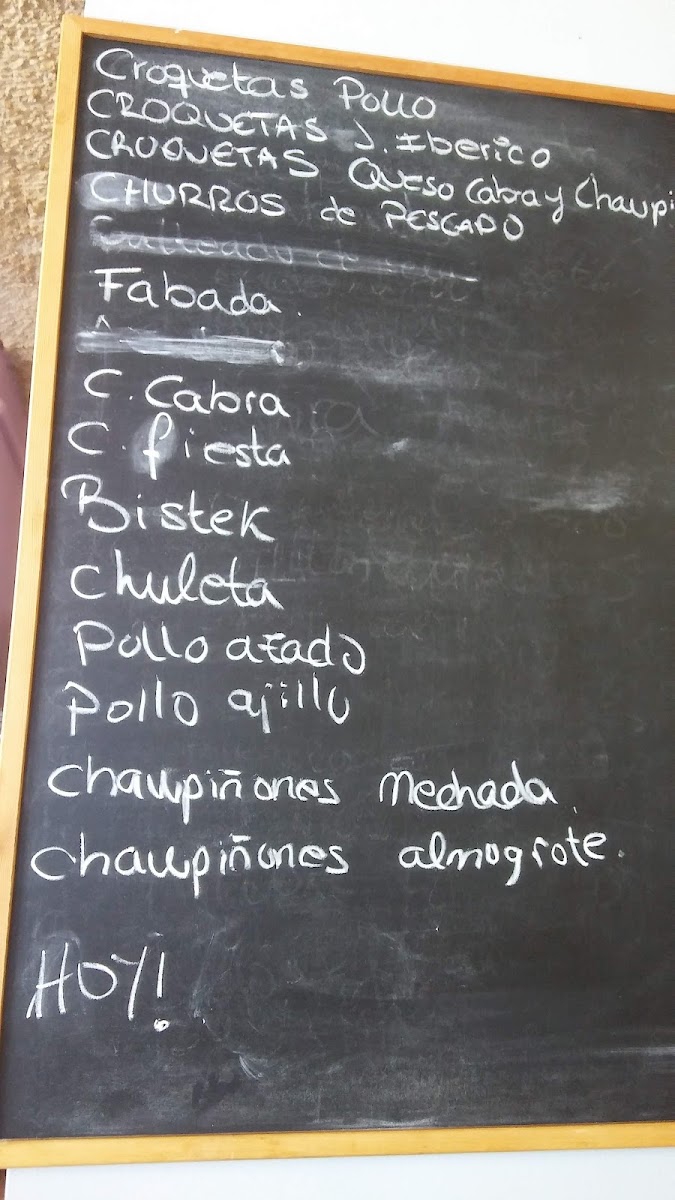 Croquetas Pollo
CROQUETAS J. IbErico
CROQUETAS QUESO Cabra y Chaupi
CHURROS de PESCADO
Fabada.
C. Cabra
C. fiesta
Bistek
chuleta
Pollo asado
Pollo ajillo
chaupiñones Mechada
chaupiñones almogrote.
HOY!